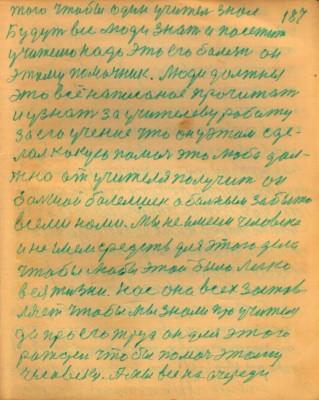 187
того чтобы один учител знал
Будут все люди знат и посетит
учителю надо это его болезн он
этому помочник. Люди должны
это всё написаное прочитат
и узнат за учителеву работу
за его учение что он у этом сде-
лал какую помоч это люба дол-
жно от учителя получит он
болной
всеми нами. Мы не имеем человека
и не имем средств для этого дела
чтобы любы этой было легко
в жизни. Нас она всех застав-
ляет чтобы мы знали про учителя
да про его труд он для этого
рожден чтобы помоч этому
человеку. А мы все на очереди